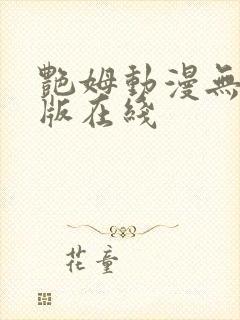 艷姆動漫無
版在綫
花童